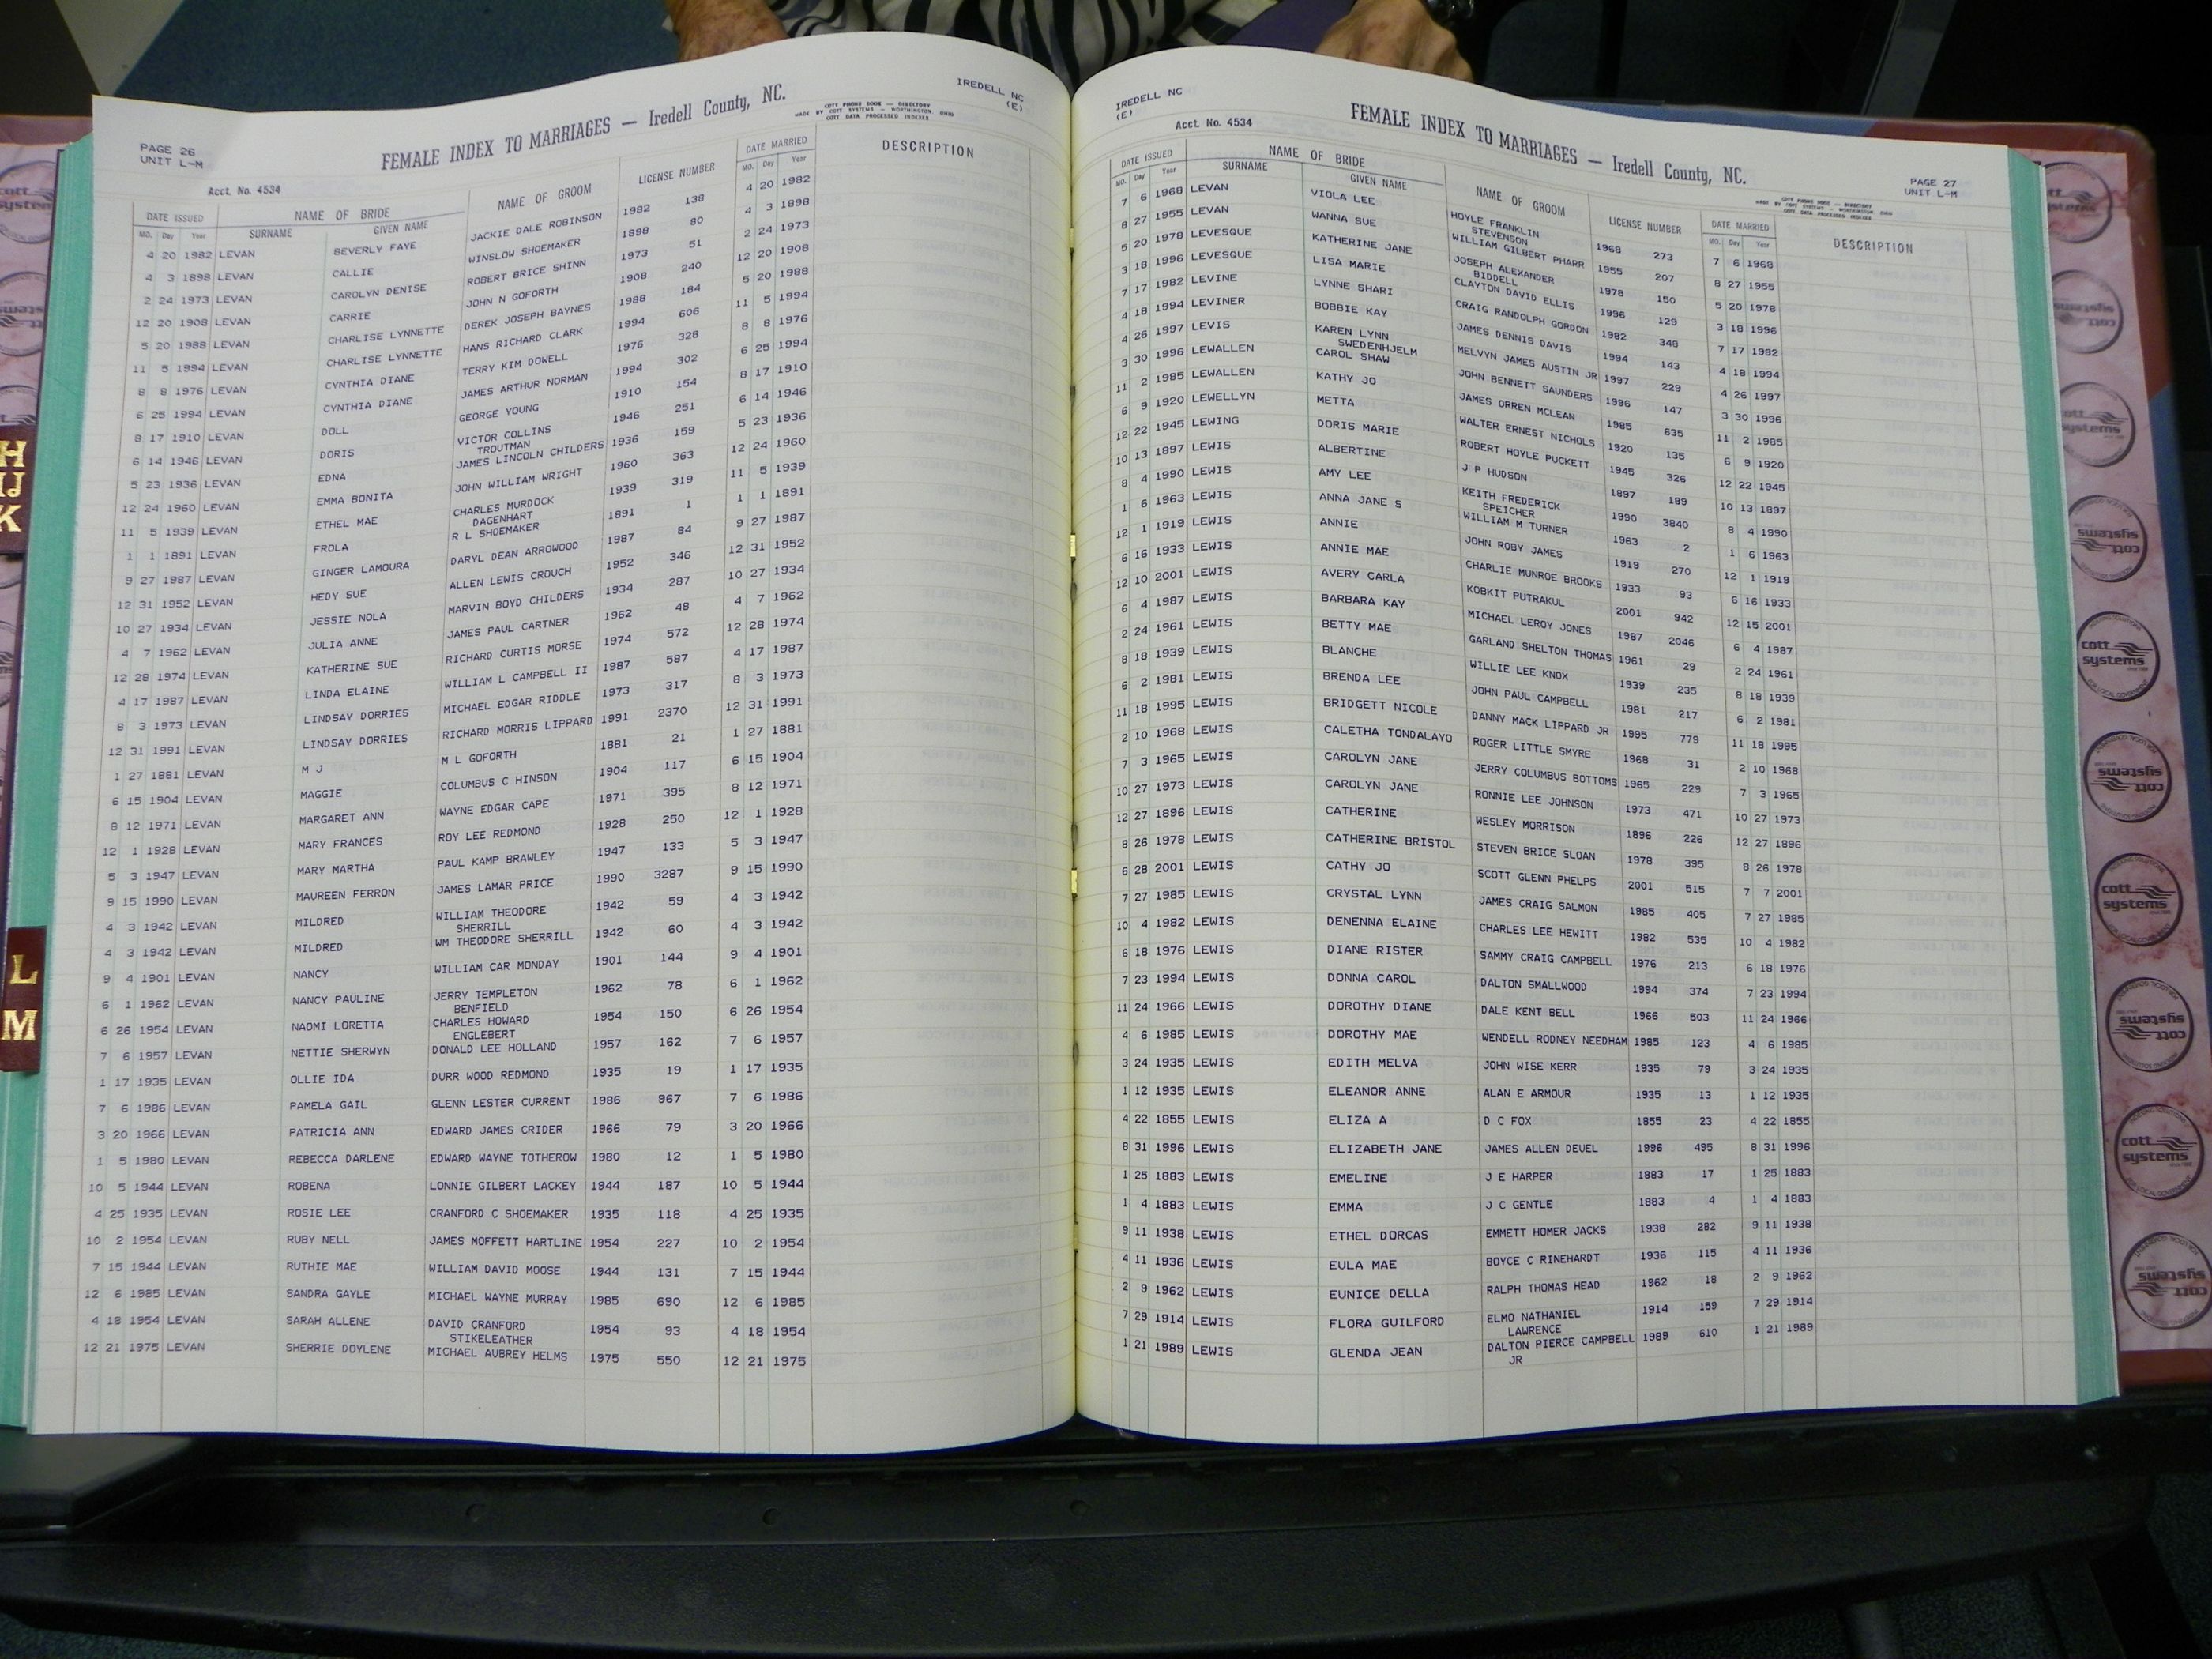 PAGE 26
UNIT L-M
FEMALE INDEX TO MARRIAGES — Iredell County, NC.
MADE BY COTT PHONE BOOK — DIRECTORY
COTT SYSTEMS — WORTHINGTON, OHIO
COTT DATA PROCESSED INDEXES
IREDELL NC
(E)
Acct. No. 4534
DATE ISSUED NAME OF BRIDE NAME OF GROOM LICENSE NUMBER DATE MARRIED DESCRIPTION
MO. Day Year SURNAME GIVEN NAME MO. Day Year
4 20 1982 LEVAN BEVERLY FAYE JACKIE DALE ROBINSON 1982 138 4 20 1982
4 3 1898 LEVAN CALLIE WINSLOW SHOEMAKER 1898 80 4 3 1898
2 24 1973 LEVAN CAROLYN DENISE ROBERT BRICE SHINN 1973 51 2 24 1973
12 20 1908 LEVAN CARRIE JOHN N GOFORTH 1908 240 12 20 1908
5 20 1988 LEVAN CHARLISE LYNNETTE DEREK JOSEPH BAYNES 1988 184 5 20 1988
11 5 1994 LEVAN CHARLISE LYNNETTE HANS RICHARD CLARK 1994 606 11 5 1994
8 8 1976 LEVAN CYNTHIA DIANE TERRY KIM DOWELL 1976 328 8 8 1976
6 25 1994 LEVAN CYNTHIA DIANE JAMES ARTHUR NORMAN 1994 302 6 25 1994
8 17 1910 LEVAN DOLL GEORGE YOUNG 1910 154 8 17 1910
6 14 1946 LEVAN DORIS VICTOR COLLINS 1946 251 6 14 1946
TROUTMAN
5 23 1936 LEVAN EDNA JAMES LINCOLN CHILDERS 1936 159 5 23 1936
12 24 1960 LEVAN EMMA BONITA JOHN WILLIAM WRIGHT 1960 363 12 24 1960
11 5 1939 LEVAN ETHEL MAE CHARLES MURDOCK 1939 319 11 5 1939
DAGENHART
1 1 1891 LEVAN FROLA R L SHOEMAKER 1891 1 1 1 1891
9 27 1987 LEVAN GINGER LAMOURA DARYL DEAN ARROWOOD 1987 84 9 27 1987
12 31 1952 LEVAN HEDY SUE ALLEN LEWIS CROUCH 1952 346 12 31 1952
10 27 1934 LEVAN JESSIE NOLA MARVIN BOYD CHILDERS 1934 287 10 27 1934
4 7 1962 LEVAN JULIA ANNE JAMES PAUL CARTNER 1962 48 4 7 1962
12 28 1974 LEVAN KATHERINE SUE RICHARD CURTIS MORSE 1974 572 12 28 1974
4 17 1987 LEVAN LINDA ELAINE WILLIAM L CAMPBELL II 1987 587 4 17 1987
8 3 1973 LEVAN LINDSAY DORRIES MICHAEL EDGAR RIDDLE 1973 317 8 3 1973
12 31 1991 LEVAN LINDSAY DORRIES RICHARD MORRIS LIPPARD 1991 2370 12 31 1991
1 27 1881 LEVAN M J M L GOFORTH 1881 21 1 27 1881
6 15 1904 LEVAN MAGGIE COLUMBUS C HINSON 1904 117 6 15 1904
8 12 1971 LEVAN MARGARET ANN WAYNE EDGAR CAPE 1971 395 8 12 1971
12 1 1928 LEVAN MARY FRANCES ROY LEE REDMOND 1928 250 12 1 1928
5 3 1947 LEVAN MARY MARTHA PAUL KAMP BRAWLEY 1947 133 5 3 1947
9 15 1990 LEVAN MAUREEN FERRON JAMES LAMAR PRICE 1990 3287 9 15 1990
4 3 1942 LEVAN MILDRED WILLIAM THEODORE 1942 59 4 3 1942
SHERRILL
4 3 1942 LEVAN MILDRED WM THEODORE SHERRILL 1942 60 4 3 1942
9 4 1901 LEVAN NANCY WILLIAM CAR MONDAY 1901 144 9 4 1901
6 1 1962 LEVAN NANCY PAULINE JERRY TEMPLETON 1962 78 6 1 1962
BENFIELD
6 26 1954 LEVAN NAOMI LORETTA CHARLES HOWARD 1954 150 6 26 1954
ENGLEBERT
7 6 1957 LEVAN NETTIE SHERWYN DONALD LEE HOLLAND 1957 162 7 6 1957
1 17 1935 LEVAN OLLIE IDA DURR WOOD REDMOND 1935 19 1 17 1935
7 6 1986 LEVAN PAMELA GAIL GLENN LESTER CURRENT 1986 967 7 6 1986
3 20 1966 LEVAN PATRICIA ANN EDWARD JAMES CRIDER 1966 79 3 20 1966
1 5 1980 LEVAN REBECCA DARLENE EDWARD WAYNE TOTHEROW 1980 12 1 5 1980
10 5 1944 LEVAN ROBENA LONNIE GILBERT LACKEY 1944 187 10 5 1944
4 25 1935 LEVAN ROSIE LEE CRANFORD C SHOEMAKER 1935 118 4 25 1935
10 2 1954 LEVAN RUBY NELL JAMES MOFFETT HARTLINE 1954 227 10 2 1954
7 15 1944 LEVAN RUTHIE MAE WILLIAM DAVID MOOSE 1944 131 7 15 1944
12 6 1985 LEVAN SANDRA GAYLE MICHAEL WAYNE MURRAY 1985 690 12 6 1985
4 18 1954 LEVAN SARAH ALLENE DAVID CRANFORD 1954 93 4 18 1954
STIKELEATHER
12 21 1975 LEVAN SHERRIE DOYLENE MICHAEL AUBREY HELMS 1975 550 12 21 1975
IREDELL NC
(E)
Acct. No. 4534
FEMALE INDEX TO MARRIAGES — Iredell County, NC.
PAGE 27
UNIT L-M
DATE ISSUED NAME OF BRIDE NAME OF GROOM LICENSE NUMBER DATE MARRIED DESCRIPTION
MO. Day Year SURNAME GIVEN NAME MO. Day Year
7 6 1968 LEVAN VIOLA LEE HOYLE FRANKLIN 1968 273 7 6 1968
STEVENSON
8 27 1955 LEVAN WANNA SUE WILLIAM GILBERT PHARR 1955 207 8 27 1955
5 20 1978 LEVESQUE KATHERINE JANE JOSEPH ALEXANDER 1978 150 5 20 1978
BIDDELL
3 18 1996 LEVESQUE LISA MARIE CLAYTON DAVID ELLIS 1996 129 3 18 1996
7 17 1982 LEVINE LYNNE SHARI CRAIG RANDOLPH GORDON 1982 348 7 17 1982
4 18 1994 LEVINER BOBBIE KAY JAMES DENNIS DAVIS 1994 143 4 18 1994
4 26 1997 LEVIS KAREN LYNN MELVYN JAMES AUSTIN JR 1997 229 4 26 1997
SWEDENHJELM
3 30 1996 LEWALLEN CAROL SHAW JOHN BENNETT SAUNDERS 1996 147 3 30 1996
11 2 1985 LEWALLEN KATHY JO JAMES ORREN MCLEAN 1985 635 11 2 1985
6 9 1920 LEWELLYN METTA WALTER ERNEST NICHOLS 1920 135 6 9 1920
12 22 1945 LEWING DORIS MARIE ROBERT HOYLE PUCKETT 1945 326 12 22 1945
10 13 1897 LEWIS ALBERTINE J P HUDSON 1897 189 10 13 1897
8 4 1990 LEWIS AMY LEE KEITH FREDERICK 1990 3840 8 4 1990
SPEICHER
1 6 1963 LEWIS ANNA JANE S WILLIAM M TURNER 1963 2 1 6 1963
12 1 1919 LEWIS ANNIE JOHN ROBY JAMES 1919 270 12 1 1919
6 16 1933 LEWIS ANNIE MAE CHARLIE MUNROE BROOKS 1933 93 6 16 1933
12 10 2001 LEWIS AVERY CARLA KOBKIT PUTRAKUL 2001 942 12 15 2001
6 4 1987 LEWIS BARBARA KAY MICHAEL LEROY JONES 1987 2046 6 4 1987
2 24 1961 LEWIS BETTY MAE GARLAND SHELTON THOMAS 1961 29 2 24 1961
8 18 1939 LEWIS BLANCHE WILLIE LEE KNOX 1939 235 8 18 1939
6 2 1981 LEWIS BRENDA LEE JOHN PAUL CAMPBELL 1981 217 6 2 1981
11 18 1995 LEWIS BRIDGETT NICOLE DANNY MACK LIPPARD JR 1995 779 11 18 1995
2 10 1968 LEWIS CALETHA TONDALAYO ROGER LITTLE SMYRE 1968 31 2 10 1968
7 3 1965 LEWIS CAROLYN JANE JERRY COLUMBUS BOTTOMS 1965 229 7 3 1965
10 27 1973 LEWIS CAROLYN JANE RONNIE LEE JOHNSON 1973 471 10 27 1973
12 27 1896 LEWIS CATHERINE WESLEY MORRISON 1896 226 12 27 1896
8 26 1978 LEWIS CATHERINE BRISTOL STEVEN BRICE SLOAN 1978 395 8 26 1978
6 28 2001 LEWIS CATHY JO SCOTT GLENN PHELPS 2001 515 7 7 2001
7 27 1985 LEWIS CRYSTAL LYNN JAMES CRAIG SALMON 1985 405 7 27 1985
10 4 1982 LEWIS DENENNA ELAINE CHARLES LEE HEWITT 1982 535 10 4 1982
6 18 1976 LEWIS DIANE RISTER SAMMY CRAIG CAMPBELL 1976 213 6 18 1976
7 23 1994 LEWIS DONNA CAROL DALTON SMALLWOOD 1994 374 7 23 1994
11 24 1966 LEWIS DOROTHY DIANE DALE KENT BELL 1966 503 11 24 1966
4 6 1985 LEWIS DOROTHY MAE WENDELL RODNEY NEEDHAM 1985 123 4 6 1985
3 24 1935 LEWIS EDITH MELVA JOHN WISE KERR 1935 79 3 24 1935
1 12 1935 LEWIS ELEANOR ANNE ALAN E ARMOUR 1935 13 1 12 1935
4 22 1855 LEWIS ELIZA A D C FOX 1855 23 4 22 1855
8 31 1996 LEWIS ELIZABETH JANE JAMES ALLEN DEUEL 1996 495 8 31 1996
1 25 1883 LEWIS EMELINE J E HARPER 1883 17 1 25 1883
1 4 1883 LEWIS EMMA J C GENTLE 1883 4 1 4 1883
9 11 1938 LEWIS ETHEL DORCAS EMMETT HOMER JACKS 1938 282 9 11 1938
4 11 1936 LEWIS EULA MAE BOYCE C RINEHARDT 1936 115 4 11 1936
2 9 1962 LEWIS EUNICE DELLA RALPH THOMAS HEAD 1962 18 2 9 1962
7 29 1914 LEWIS FLORA GUILFORD ELMO NATHANIEL 1914 159 7 29 1914
LAWRENCE
1 21 1989 LEWIS GLENDA JEAN DALTON PIERCE CAMPBELL 1989 610 1 21 1989
JR
H
IJ
K
L
M
cott
systems
cott
systems
cott
systems